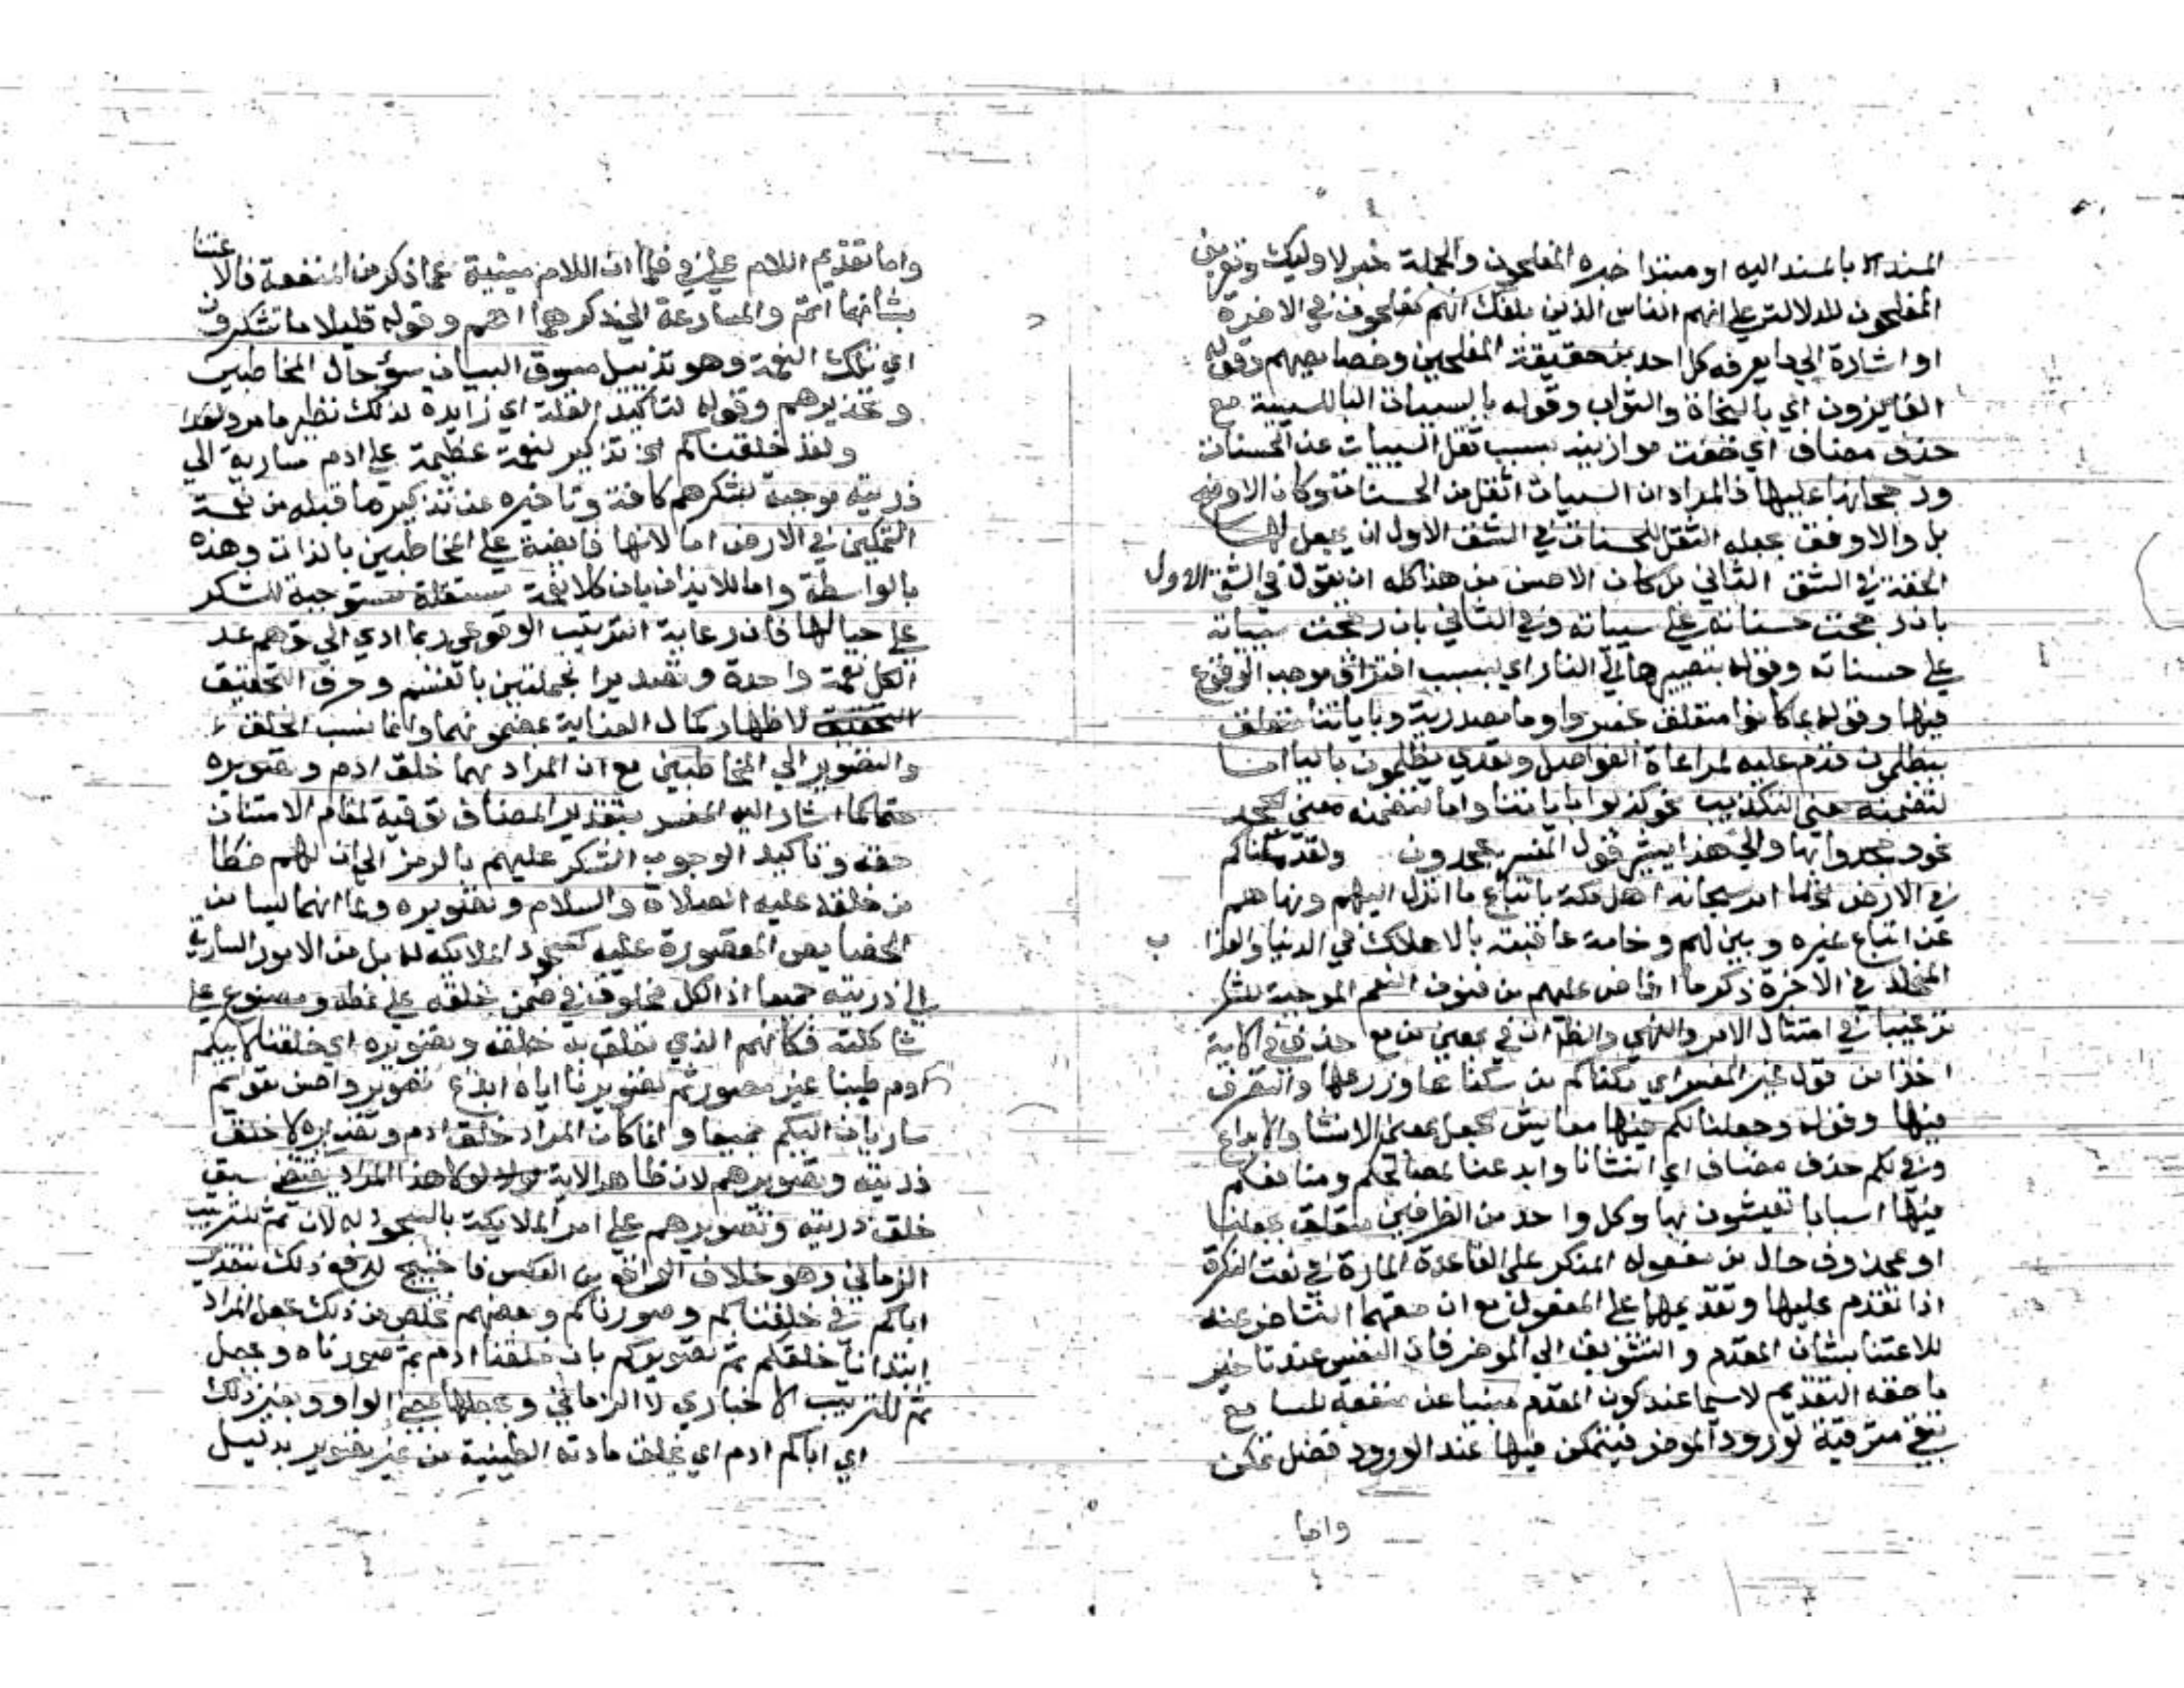 المسند الا بالمسند اليه او مبتدا خبره المفلحون والجملة خبر لاوليك وتعريف
المفلحون للدلالة على انهم الناس الذين بلغك انهم مفلحون في الاخرة
او اشارة الي ما يعرفه كل احد من حقيقة المفلحين وخصايصهم وقوله
الفايزون اي بالنجاة والثواب وقوله بالسييات البا للسببية مع
حذف مضاف اي خفت موازينه بسبب ثقل السييات عن الحسنات
ورجحانها عليها فالمراد ان السييات اثقل من الحسنات وكان الاوضح
بل والاوفق بجعله الثقل للحسنات في الشق الاول ان يجعل
الخفة في الشق الثاني بل كان الاحسن من هذا كله ان يقول في الشق الاول
بان رجحت حسناته علي سيياته وفي الثاني بان رجحت سيياته
علي حسناته وقوله بتصييرها الي النار اي بسبب اقتراف موجب الوقوع
فيها وقوله بما كانوا متعلق بخسروا وما مصدرية وباياتنا متعلق
بيظلمون قدم عليه لمراعاة الفواصل وتعدي يظلمون بالبا اما
لتضمنه معني التكذيب نحو كذبوا باياتنا واما لتضمنه معني الجحد
نحو جحدوا بها والي هذا يشير قول المفسر يجحدون ولقد مكناكم
في الارض لما امر سبحانه اهل مكة باتباع ما انزل اليهم ونهاهم
عن اتباع غيره وبين لهم وخامة عاقبته بالاهلاك في الدنيا والعذاب
المخلد في الاخرة ذكر ما افاض عليهم من فنون النعم الموجبة للشكر
ترغيبا في امتثال الامر والنهي والظاهر ان في بمعني من مع حذف في الاية
اخذا من قول غير المفسر اي مكناكم من سكناها وزرعها والتصرف
فيها وقوله وجعلنا لكم فيها معايش الجعل بمعني الانشا والابداع
وفي لكم حذف مضاف اي انشانا وابدعنا لمصالحكم ومنافعكم
فيها اسبابا تعيشون بها وكل واحد من الظرفين متعلق بجعلنا
او بمحذوف حال من مفعوله المنكر علي القاعدة المارة في نعت النكرة
اذا تقدم عليها وتقديمهما علي المفعول مع ان حقهما التاخر عنه
للاعتنا بشان المقدم والتشويق الي الموخر فان النفس عند تاخير
ما حقه التقديم لاسيما عند كون المقدم مبنيا عن منفعة للسامع
تبقي مترقبة لورود الموخر فيتمكن فيها عند الورود فضل تمكن
واما
واما تقديم اللام علي في فلما ان اللام مبنية عما ذكر من المنفعة فالاعتنا
بشانها اتم والمسارعة الي ذكرها اهم وقوله قليلا ما تشكرون
اي تلك النعمة وهو تذييل مسوق لبيان سوء حال المخاطبين
وتحذيرهم وقوله لتاكيد القلة اي زايدة لذلك نظير ما مر ولقد
ولقد خلقناكم الخ تذكير لنعمة عظيمة علي ادم سارية الي
ذريته موجبة لشكرهم كافة وتاخيره عن تذكير ما قبله من نعمة
التمكين في الارض اما لانها فايضة علي المخاطبين بالذات وهذه
بالواسطة واما للايذان بان كلا نعمة مستقلة مستوجبة للشكر
علي حيالها فان رعاية الترتيب الوقوعي ربما ادي الي توهم عد
الكل نعمة واحدة وتصدير الجملتين بالقسم وحرف التحقيق
لاظهار كمال العناية بمضمونهما وانما نسب الخلق
والتصوير الي المخاطبين مع ان المراد بهما خلق ادم وتصويره
حتما كما اشار اليه المفسر بتقدير المضاف توفية لمقام الامتنان
حقه وتاكيد الوجوب الشكر عليهم بالرمز الي ان لهم حظا
من خلقه عليه الصلاة والسلام وتصويره وما انهما ليسا من
الخصايص المقصورة عليه كسجود الملايكة له بل من الامور السارية
الي ذريته جميعا اذ الكل مخلوق في ضمن خلقه علي نمطه ومصنوع علي
شاكلته فكانهم الذي تعلق به خلقه وتصويره اي خلقنا ابيكم
ادم طينا غير مصور ثم تصويرنا اياه ابدع تصوير واحسن تقويم
ساريان اليكم جميعا وانما كان المراد خلق ادم وتصويره لا خلق
ذريته وتصويرهم لان ظاهر الاية لولا هذا المراد يقتضي سبق
خلق ذريته وتصويرهم علي امر الملايكة بالسجود له لان ثم للترتيب
الزماني وهو خلاف الواقع من العكس فاحتيج لدفع ذلك بتقدير
اباكم في خلقناكم وصورناكم وبعضهم تخلص من ذلك بجعل المراد
ابتدانا خلقكم ثم تصويركم بان خلقنا ادم ثم صورناه وبجعل
ثم للترتيب الاخباري لا الزماني وبجعلها بمعني الواو وبغير ذلك
اي اباكم ادم اي بخلق مادته الطينية من غير تصوير بدليل